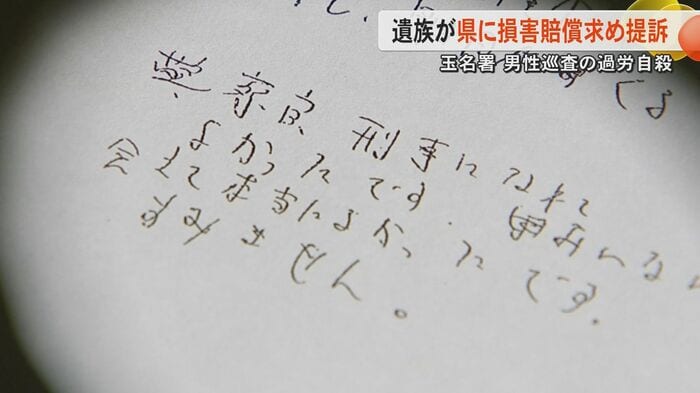 遺族が県に損害賠償求め提訴
玉名署 男性巡査の過労自殺
てる
警察官、刑事になれて
よかったです. 皆みんな
会えて本当によかったです.
すみません。